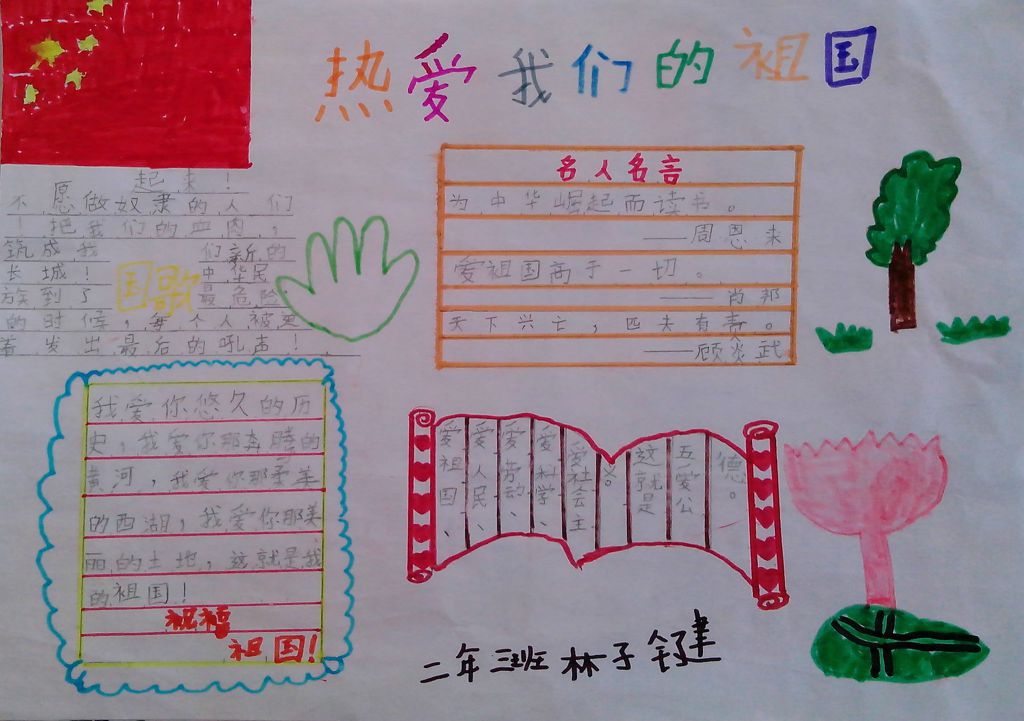 热爱我们的祖国
起来！
不愿做奴隶的人们
！把我们的血肉，
筑成我们新的
长城！中华民
族到了最危险
的时候，每个人被迫
着发出最后的吼声！
国歌
名人名言
为中华崛起而读书。
——周恩来
爱祖国高于一切。
——肖邦
天下兴亡，匹夫有责。
——顾炎武
我爱你悠久的历
史，我爱你那奔腾的
黄河，我爱你那柔美
的西湖，我爱你那美
丽的土地，这就是我
的祖国！
祝福
祖国！
爱祖国、
爱人民、
爱劳动、
爱科学、
爱社会主
义。
这就是
五爱公
德。
二年三班 林子键